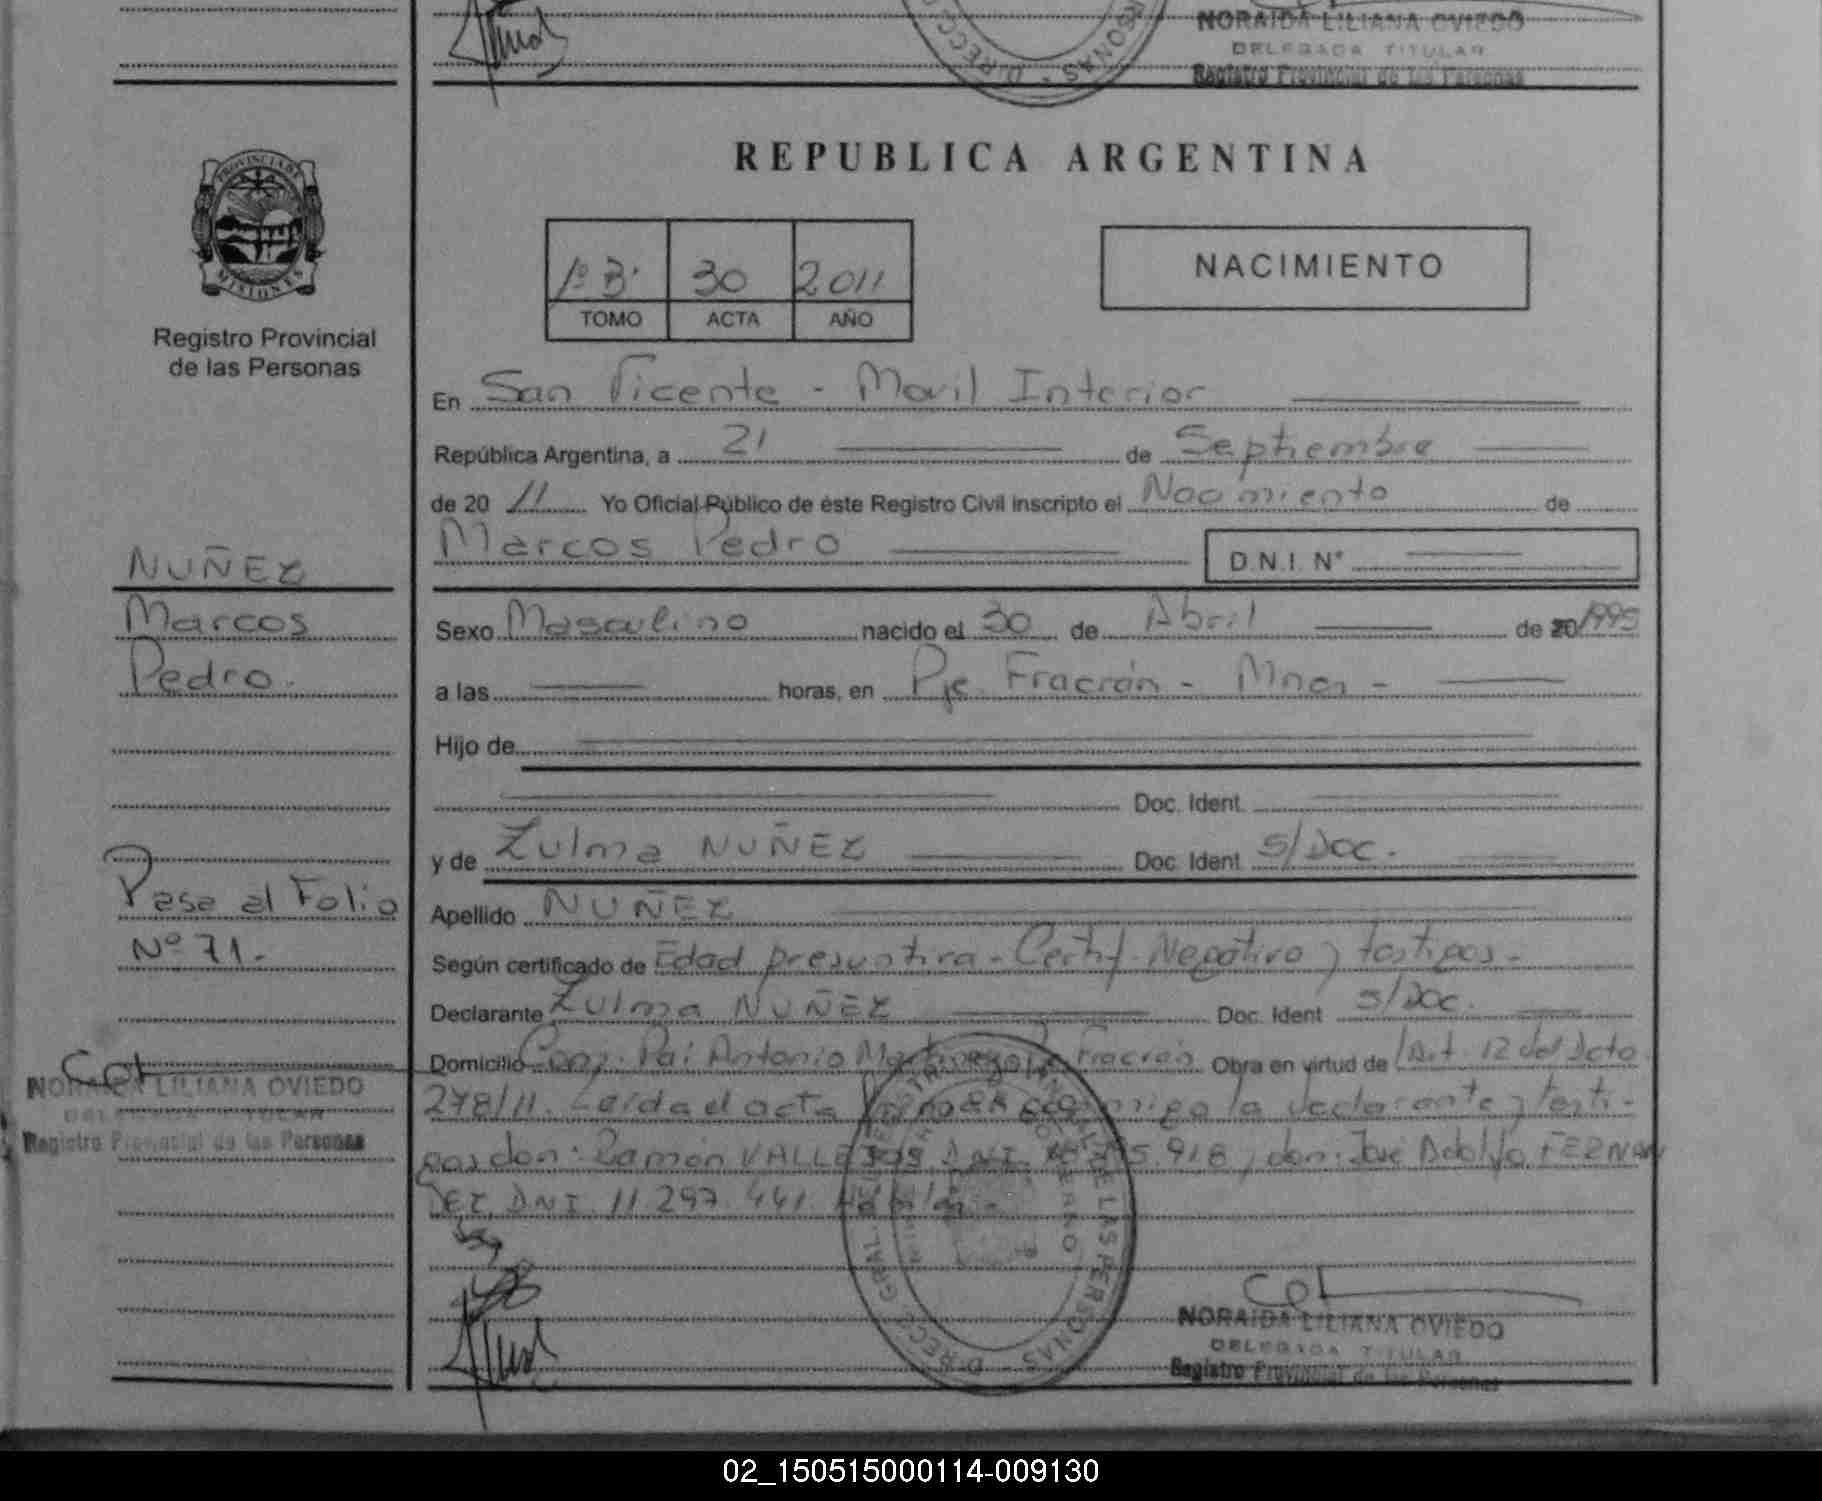 NORAIDA LILIANA OVIEDO
DELEGADA TITULAR
Registro Provincial de las Personas
REPUBLICA ARGENTINA
PROVINCIA DE
MISIONES
Registro Provincial
de las Personas
1º B. 30 2011
TOMO ACTA AÑO
NACIMIENTO
En San Vicente - Movil Interior
República Argentina, a 21 de Septiembre
de 20 11 Yo Oficial Público de este Registro Civil inscripto el Nacimiento de
Marcos Pedro D.N.I. Nº
NUÑEZ
Marcos
Pedro.
Sexo Masculino nacido el 30 de Abril de 20 1995
a las horas, en Pje. Fracrán - Mnes -
Hijo de
Doc. Ident.
y de Zulma NUÑEZ Doc. Ident. S/Doc.
Apellido NUÑEZ
Pasa al Folio
Nº 71.-
Según certificado de Edad presuntiva - Certif. Negativo y testigos -
Declarante Zulma NUÑEZ Doc. Ident. S/Doc.
Domicilio Conj. Pai Antonio Martinez Fracrán Obra en virtud de Art. 12 del Dcto
278/11. Leída el acta la declarante y testi-
gos don: Ramón VALLEJOS DNI. 5.918 y don: José Adolfo FERNAN
DEZ, DNI. 11.297.441.
NORAIDA LILIANA OVIEDO
DELEGADA TITULAR
Registro Provincial de las Personas
NORAIDA LILIANA OVIEDO
DELEGADA TITULAR
Registro Provincial de las Personas
02_150515000114-009130